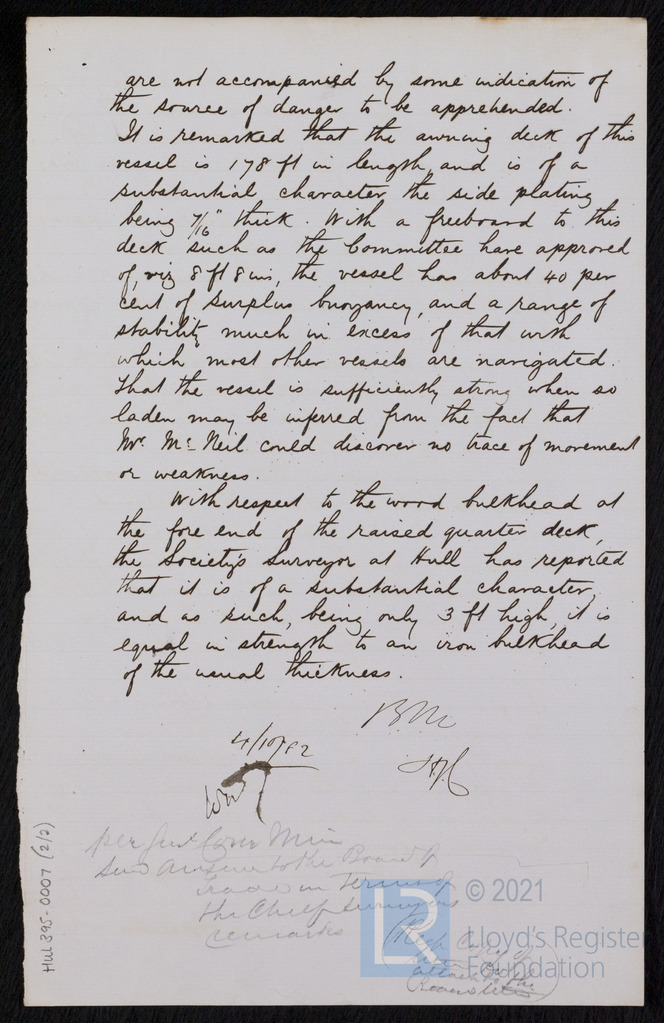 are not accompanied by some indication of
the source of danger to be apprehended.
It is remarked that the awning deck of this
vessel is 178 ft in length, and is of a
substantial character, the side plating
being 7/16" thick. With a freeboard to this
deck such as the Committee have approved
of, viz 8 ft 8 ins, the vessel has about 40 per
cent of surplus buoyancy, and a range of
stability much in excess of that with
which most other vessels are navigated.
That the vessel is sufficiently strong when so
laden may be inferred from the fact that
Mr. McNeil could discover no trace of movement
or weakness.
With respect to the wood bulkhead at
the fore end of the raised quarter deck,
the Society's Surveyor at Hull has reported
that it is of a substantial character,
and as such, being only 3 ft high, it is
equal in strength to an iron bulkhead
of the usual thickness.
4/10/82
per Com Min
Answer to the Board of
Trade in terms of
the Chief Surveyors
remarks
the
Hul 395-0007 (2/2)
LR
© 2021
Lloyd's Register
Foundation